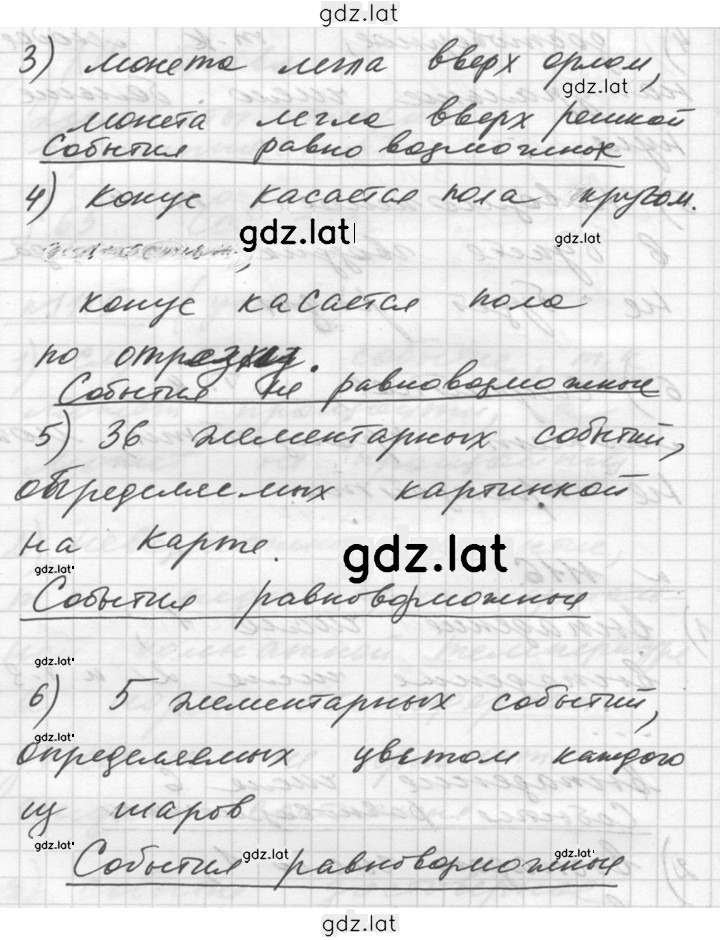 gdz.lat
3) монета легла вверх орлом,
gdz.lat
монета легла вверх решкой
События равно возможных
4) конус касается пола кругом.
gdz.lat
gdz.lat
конус касается пола
по отрезку.
События не равновозможные
5) 36 элементарных событий,
определяемых картинкой
на карте.
gdz.lat
gdz.lat
События равновозможные
gdz.lat
6) 5 элементарных событий,
gdz.lat
определяемых цветом каждого
из шаров
gdz.lat
gdz.lat
gdz.lat
События равновозможные
gdz.lat